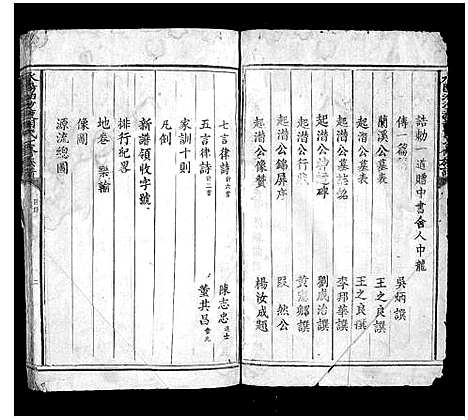 誥勅一道贈中書舍人中龍
傳一篇 吳炳譔
蘭溪公墓表 王之良譔
起潛公墓表 王之良譔
起潛公墓誌銘 李邦華譔
起潛公神道碑 劉咸治譔
起潛公行 黃 卿譔
起潛公錦屏序 殷然公
起潛公像贊 楊汝成題
七言律詩 計六首 陳志忠 進士
五言律詩 計二首 董其昌
家訓十則
凡劍
新譜領收字號
排行紀畧
地卷 樂輸
像圖
源流總圖